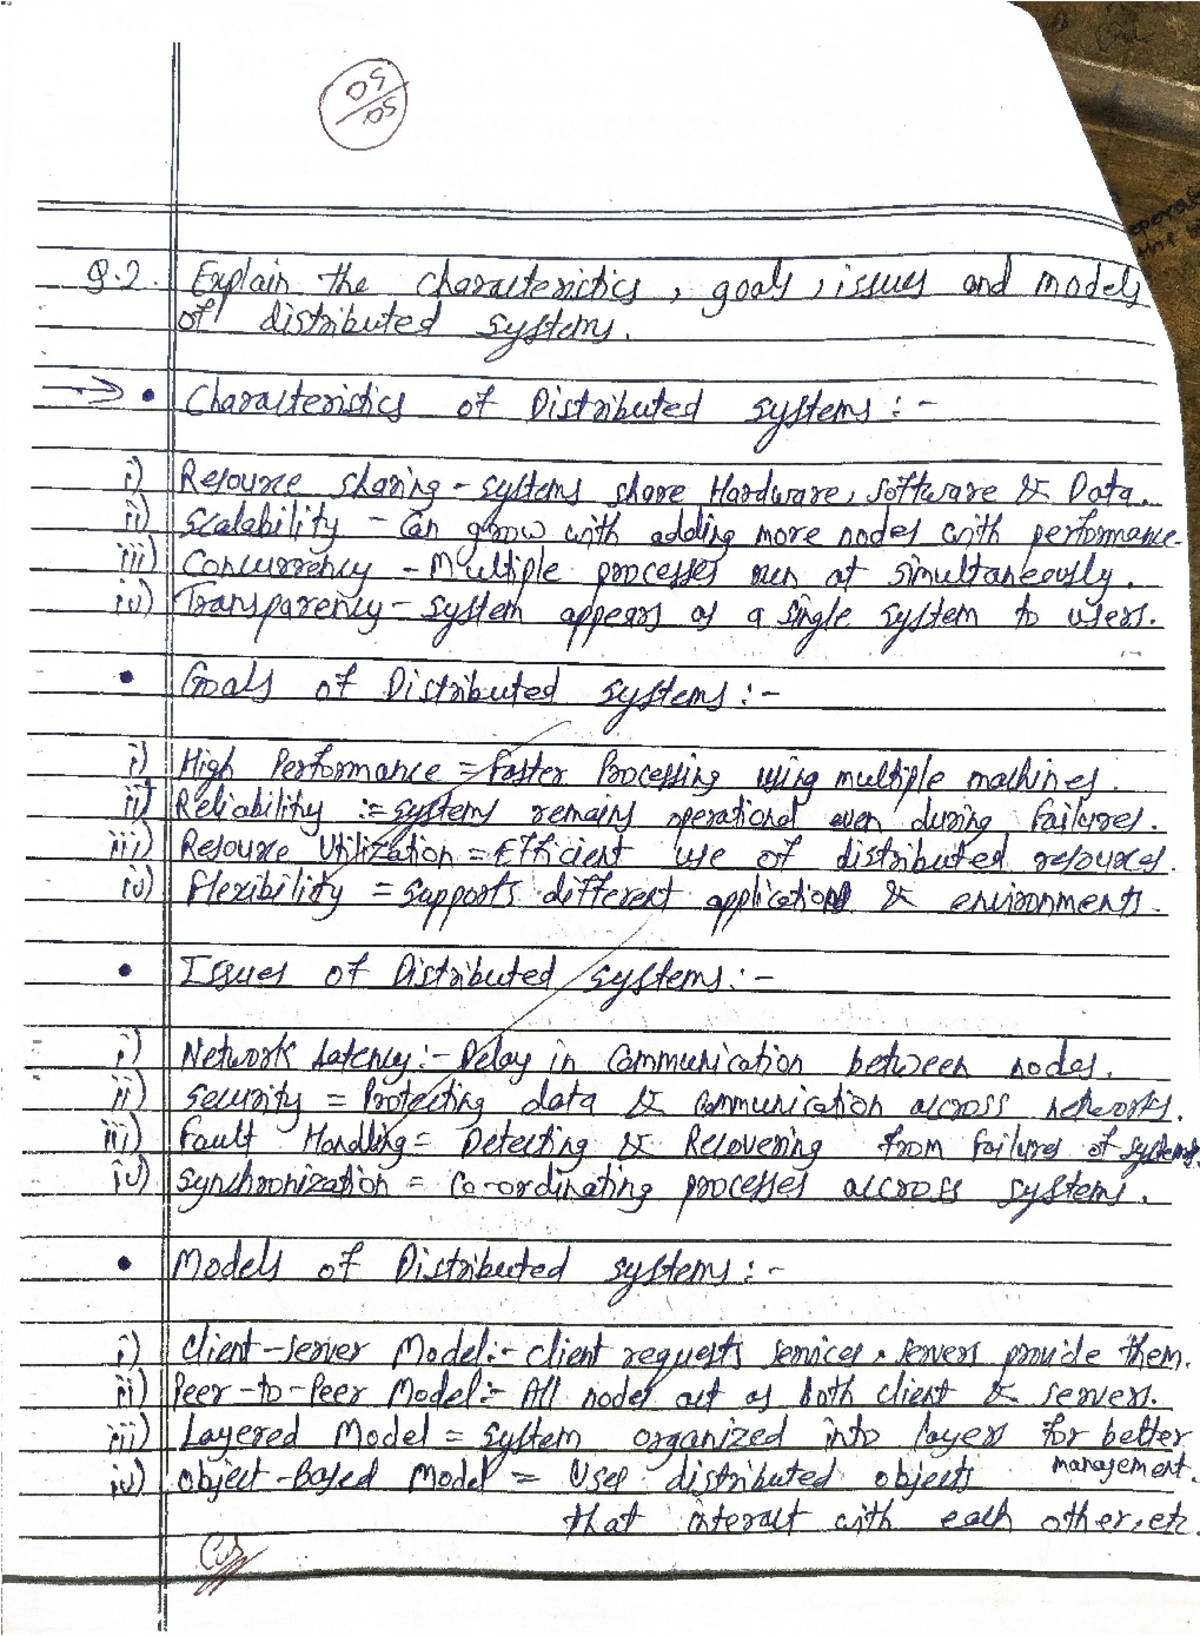 50
50
Q.2. Explain the characteristics, goals, issues and models
of distributed systems.
→ • Characteristics of Distributed systems :-
i) Resource sharing - systems share Hardware, software & Data.
ii) Scalability - Can grow with adding more nodes with performance.
iii) Concurrency - Multiple processes run at simultaneously.
iv) Transparency - system appears as a single system to users.
• Goals of Distributed systems :-
i) High Performance = Faster Processing using multiple machines.
ii) Reliability := systems remains operational even during failures.
iii) Resource Utilization = Efficient use of distributed resources.
iv) Flexibility = supports different applications & environments.
• Issues of Distributed systems :-
i) Network Latency :- Delay in Communication between nodes.
ii) Security = Protecting data & communication across networks.
iii) Fault Handling = Detecting & Recovering from failures of systems.
iv) Synchronization = Co-ordinating processes accross systems.
• Models of Distributed systems :-
i) Client-server Model :- client requests services, servers provide them.
ii) Peer-to-Peer Model :- All nodes act as both client & servers.
iii) Layered Model = system organized into layers for better
management.
iv) Object-Based Model = Uses distributed objects
that interact with each other, etc.